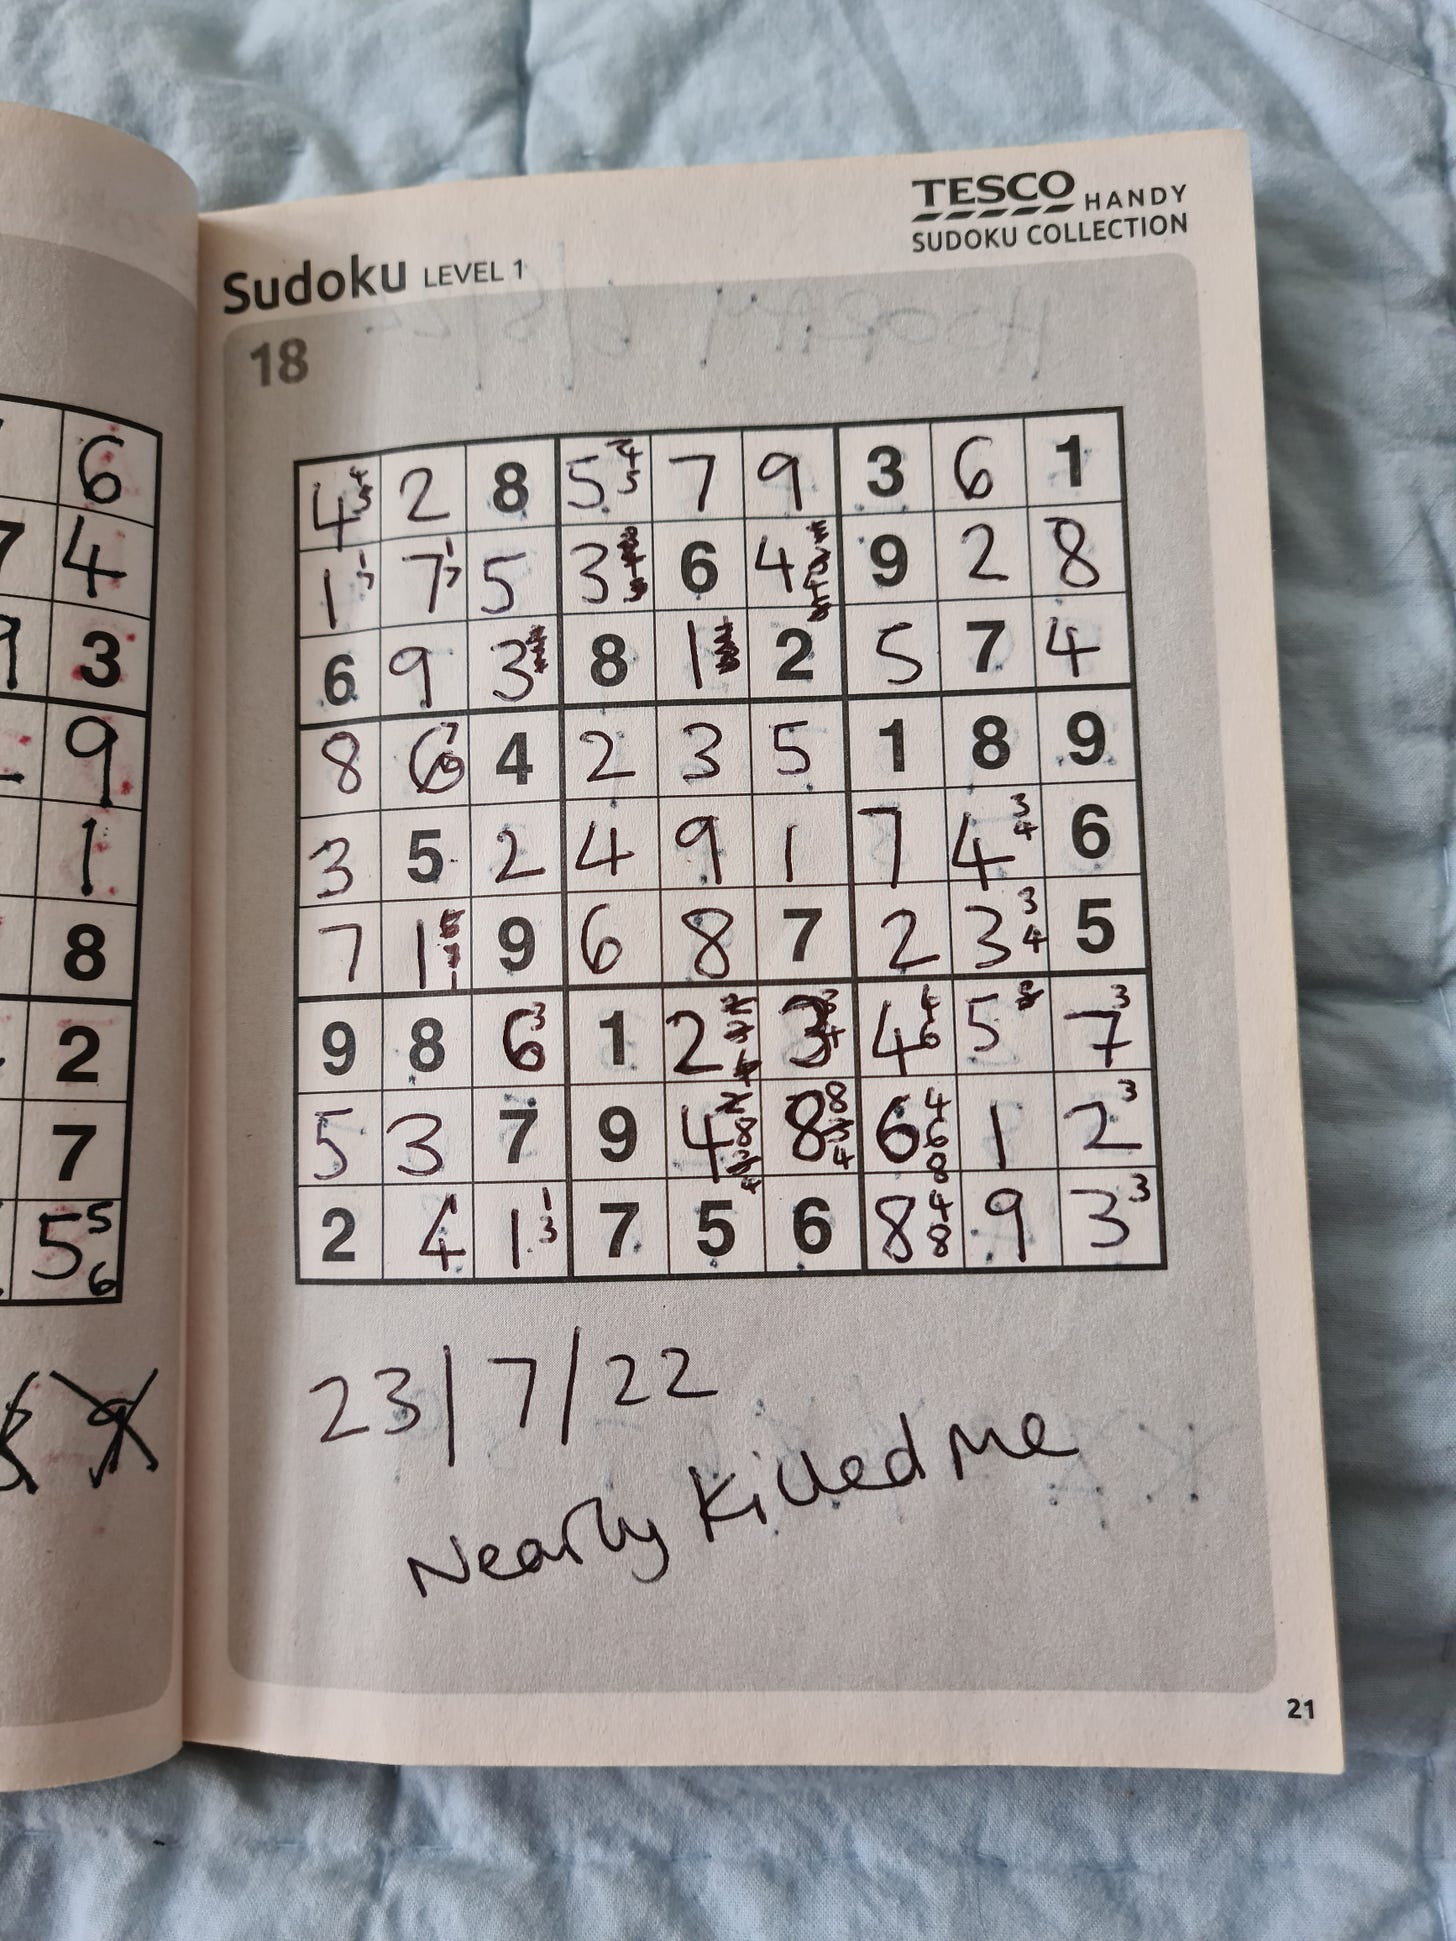 TESCO HANDY
SUDOKU COLLECTION
Sudoku LEVEL 1
18
4 2 8 5 7 9 3 6 1
1 7 5 3 6 4 9 2 8
6 9 3 8 1 2 5 7 4
8 6 4 2 3 5 1 8 9
3 5 2 4 9 1 7 4 6
7 1 9 6 8 7 2 3 5
9 8 6 1 2 3 4 5 7
5 3 7 9 4 8 6 1 2
2 4 1 7 5 6 8 9 3
23/7/22
Nearly Killed Me
21
6
7 4
9 3
9
1
8
2
7
5 5 6